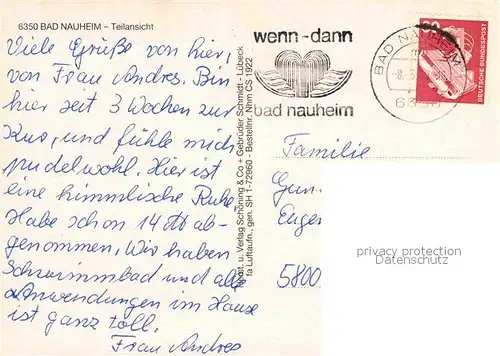 6350 BAD NAUHEIM – Teilansicht
Viele Grüße von hier,
von Frau Andres. Bin
hier seit 3 Wochen zur
Kur, und fühle mich
pudelwohl. Hier ist
eine himmlische Ruhe.
Habe schon 14 ab-
genommen, Wir haben
Schwimmbad und alle
Anwendungen im Hause
ist ganz toll.
Frau Andres
u. Verlag Schöning & Co + Gebrüder Schmidt - Lübeck
fa Luftaufn., gen. SH 1-72960 - Bestellnr. Nhm CS 1922
wenn-dann
bad nauheim
BAD NAUHEIM
DEUTSCHE BUNDESPOST
Familie
Gun
Eugen
5800
privacy protection
Datenschutz